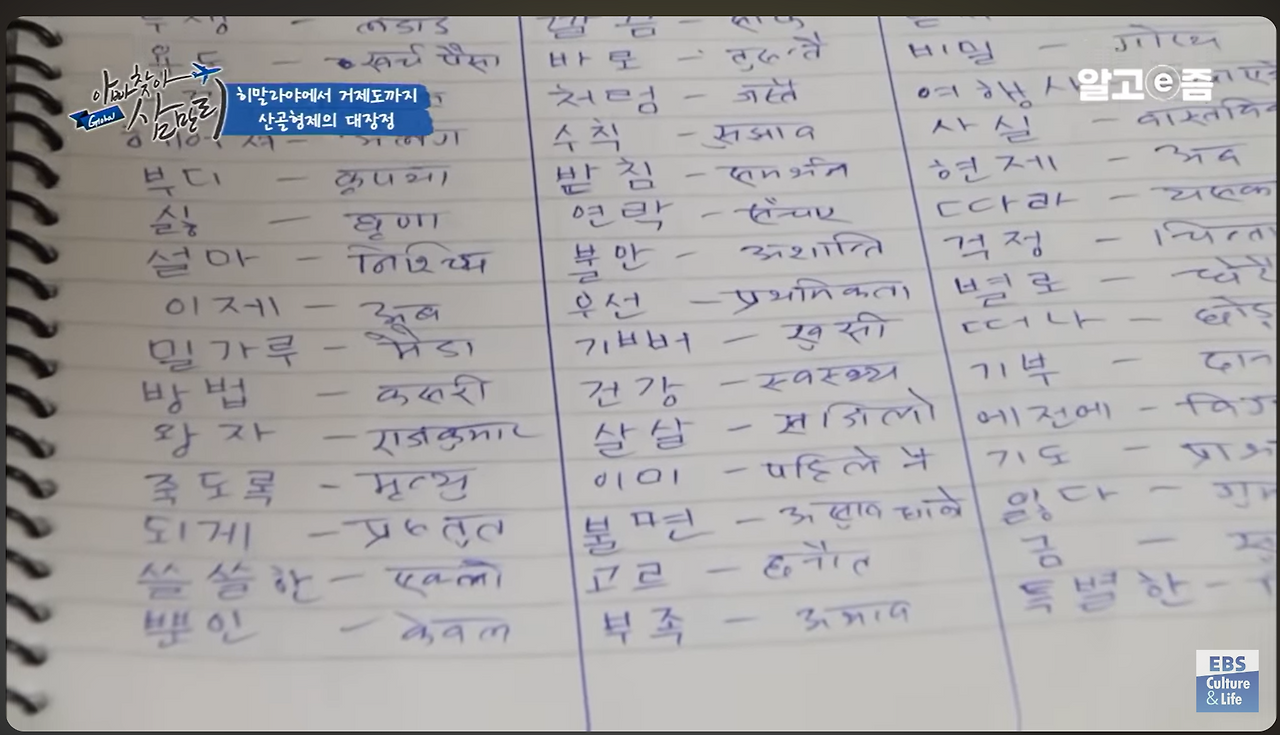 아빠 찾아
Global
삼만리
히말라야에서 거제도까지
산골형제의 대장정
알고e즘
खर्च पैसा
부디 – कृपया
싫 – घृणा
설마 – निश्चय
이제 – अब
밀가루 – मैदा
방법 –
왕자 – राजकुमार
죽도록 – मृत्यु
되게 – प्रस्तुत
쓸쓸한 – एक्लो
뿐인 – केवल
바로 – तुरुन्तै
처럼 – जस्तै
수칙 – सुझाव
받침 – समर्थन
연락 –
불안 – अशान्ति
우선 – प्रथमिकता
기뻐 – खुसी
건강 – स्वस्थ्य
살살 – सजिलो
이미 – पहिले नै
불면 –
고르 – छनौत
부족 – अभाव
비밀 – गोप्य
여행사
사실 – वास्तविक
현제 – अब
따라 –
걱정 – चिन्ता
별로 –
떠나 – छोड
기부 – दान
에전에 –
기도 –
잃다 –
금 –
특별한 –
EBS
Culture
& Life